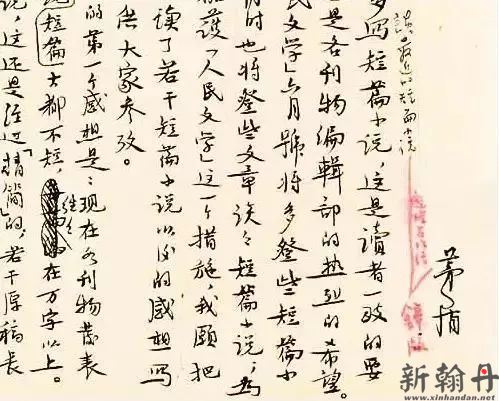 茅盾
談最近的短篇小说
多寫短篇小说，这是讀者一致的要
是各刊物编輯部的热烈的希望。
民文学」六月號将多登些短篇小
时也将登些文章谈谈短篇小说，为
護「人民文学」这一个措施，我願把
读了若干短篇小说以后的感想写
供大家参考。
的第一个感想是：现在各刊物發表
短篇大都不短，往往在万字以上。
说，这还是经过「精简」的，若干原稿长
新翰丹
www.xinhandan.net